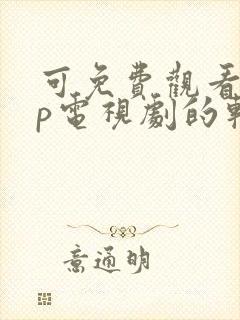 可免費觀看
p電視劇的軟
意通明